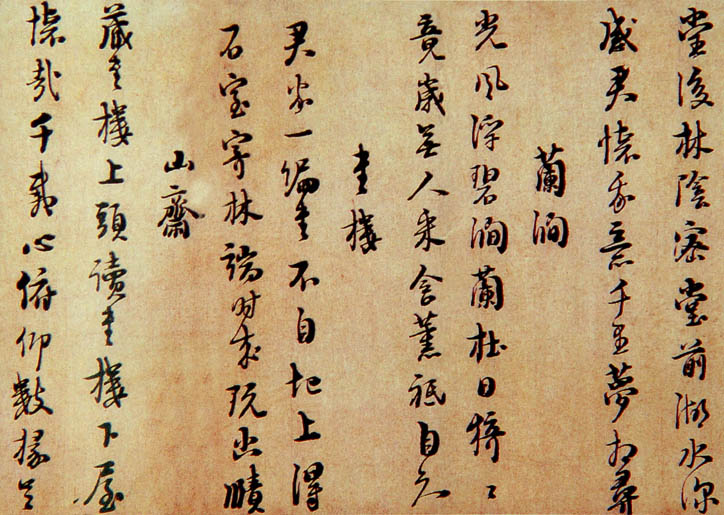 堂後林陰密堂前湖水深
感君懷我意千里夢相尋
蘭澗
光風浮碧澗蘭杜日猗猗
竟歲無人采含薰祗自知
書樓
君家一編書不自圯上得
石室寄林端時來玩幽賾
山齋
藏書樓上頭讀書樓下屋
懷哉千載心俯仰數椽足